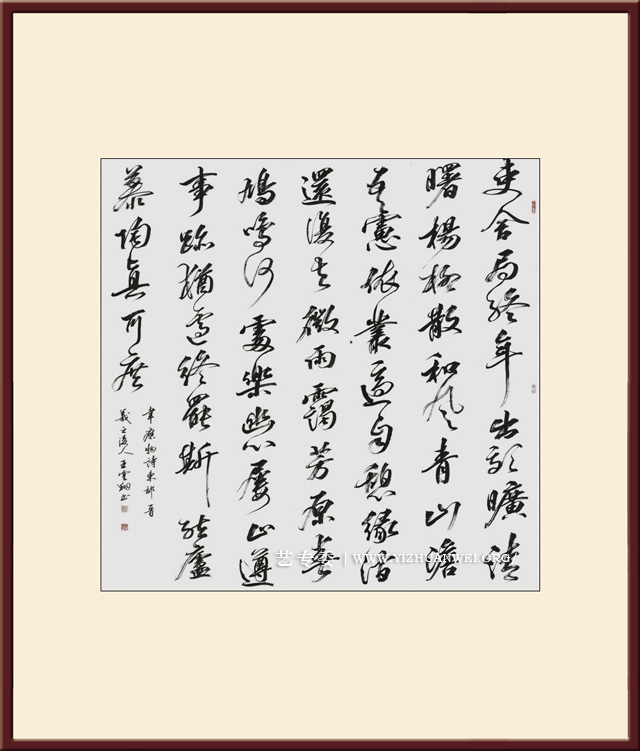 吏舍局終年出郊曠清
曙楊柳散和風青山澹
吾慮依叢適自憩緣澗
還復去微雨靄芳原春
鳩鳴何處樂幽心屢止遵
事跡猶遽終罷斯結廬
慕陶真可庶
韋應物詩東郊
羲之後人王雲翔書
艺专委 | WWW.YIZHUANWEI.ORG